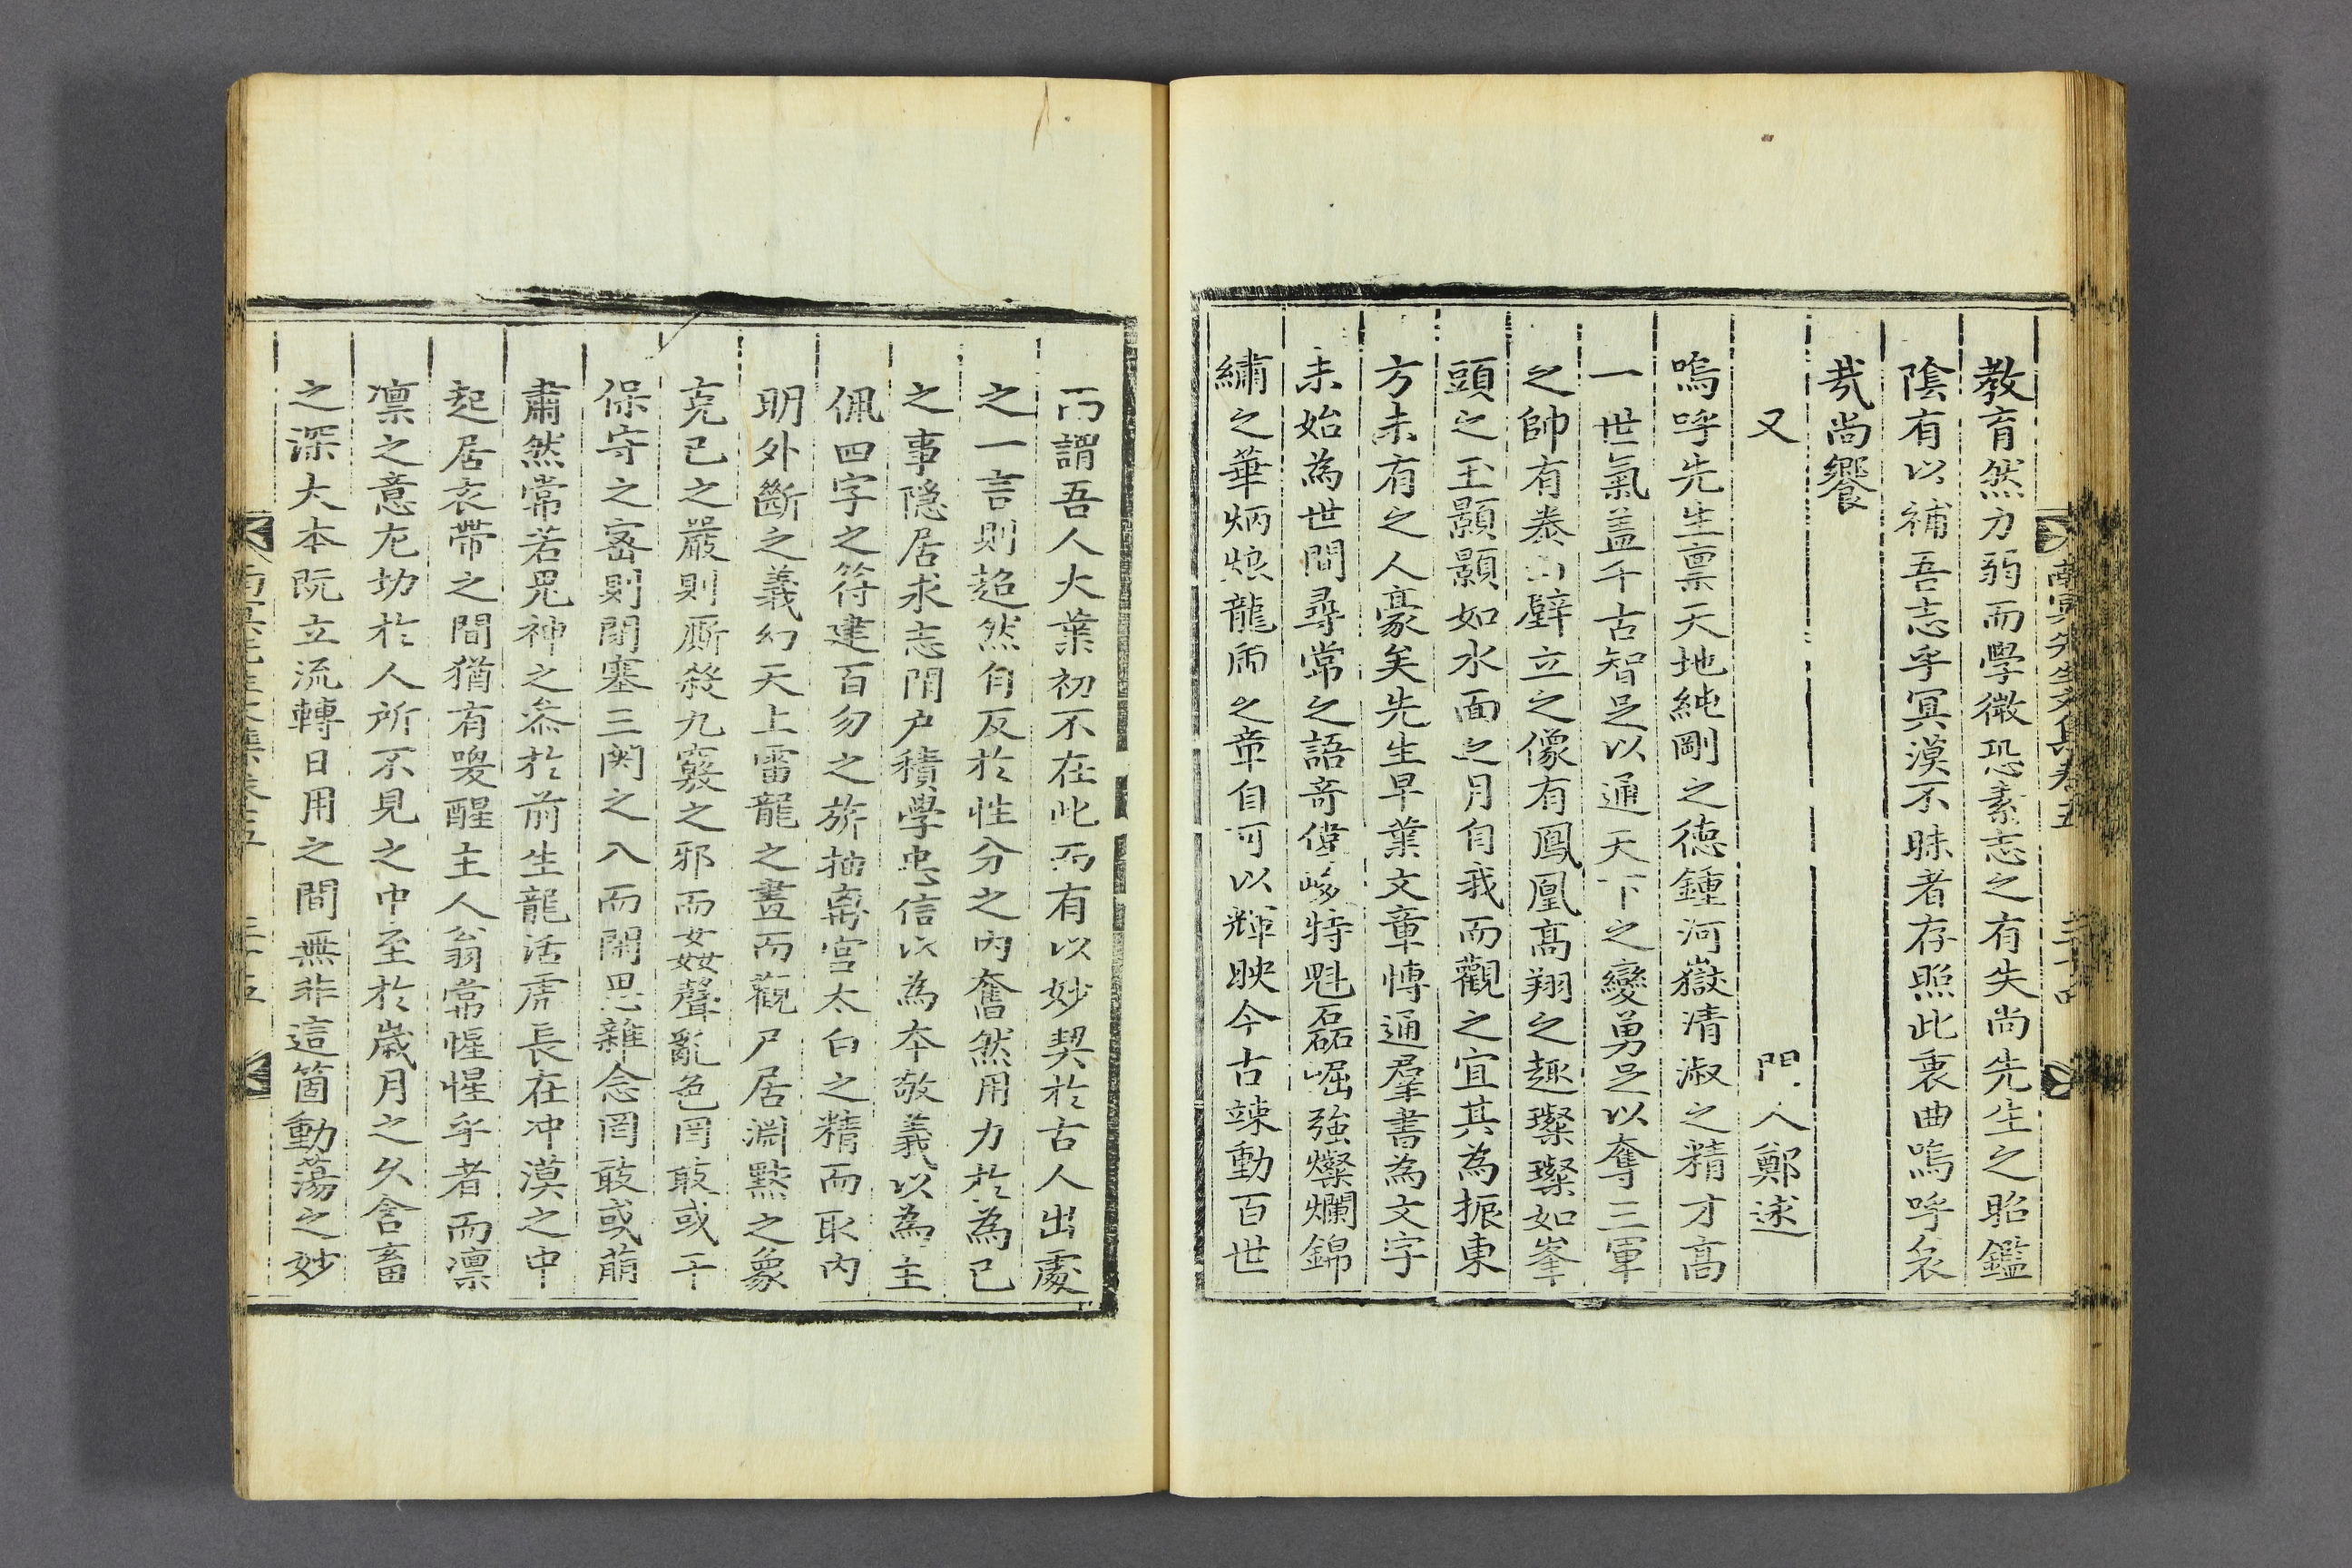 教育然力弱而學微恐素志之有失尚先生之昭鑑
陰有以補吾志乎冥漠不昧者存照此衷曲嗚呼哀
㢤尚饗
又 門人鄭逑
嗚呼先生禀天地純剛之德鍾河嶽清淑之精才高
一世氣盖千古智足以通天下之變勇足以奪三軍
之帥有泰山壁立之像有鳳凰高翔之趣璨璨如峯
頭之玉顥顥如水面之月自我而觀之宜其為振東
方未有之人豪矣先生早業文章博通羣書為文字
未始為世間尋常之語奇偉峻特魁磊崛強燦爛錦
繡之華炳烺龍虎之章自可以輝映今古竦動百世
而謂吾人大業初不在此而有以妙契於古人出處
之一言則超然自反於性分之內奮然用力於為己
之事隱居求志閉户積學忠信以為本敬義以為主
佩四字之符建百勿之旂抽离宮太白之精而取內
明外斷之義幻天上雷龍之畫而觀尸居淵默之象
克己之嚴則厮殺九竅之邪而姦聲亂色罔敢或干
保守之宻則閉塞三関之入而閑思雜念罔敢或萠
肅然常若鬼神之叅於前生龍活虎長在冲漠之中
起居衣帶之間猶有喚醒主人翁常惺惺乎者而凛
凛之意尤切於人所不見之中至於歲月之久含畜
之深大本既立流轉日用之間無非這箇動蕩之妙
南冥先生文集卷五 三十四
南冥先生文集卷五 三十五